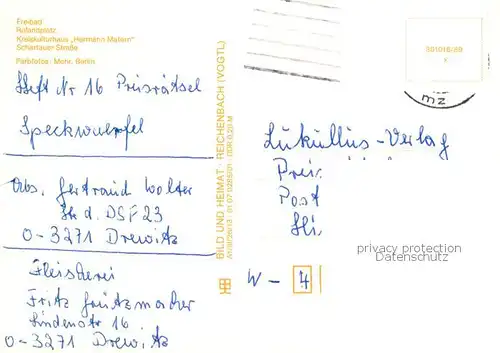 Freibad
Rolandplatz
Kreiskulturhaus „Hermann Matern"
Schartauer Straße
Farbfotos: Mohr, Berlin
Heft Nr 16 Preisrätsel
Speckwuerfel
Abs. Gertraud Wolter
Str. d. DSF 23
O-3271 Drewitz
Fleischerei
Fritz Grützmacher
Lindenstr 16
O-3271 Drewitz
BILD UND HEIMAT · REICHENBACH (VOGTL)
mz
Lukullus-Verlag
Preis
Post
W - 4
privacy protection
Datenschutz